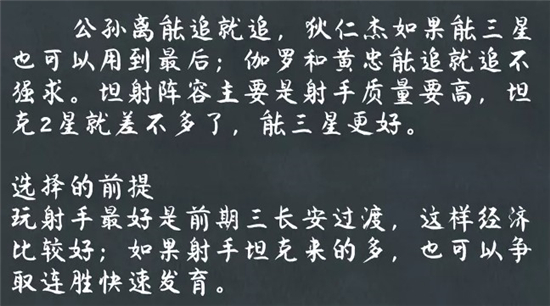 公孙离能追就追，狄仁杰如果能三星
也可以用到最后；伽罗和黄忠能追就追不
强求。坦射阵容主要是射手质量要高，坦
克2星就差不多了，能三星更好。
选择的前提
玩射手最好是前期三长安过渡，这样经济
比较好；如果射手坦克来的多，也可以争
取连胜快速发育。